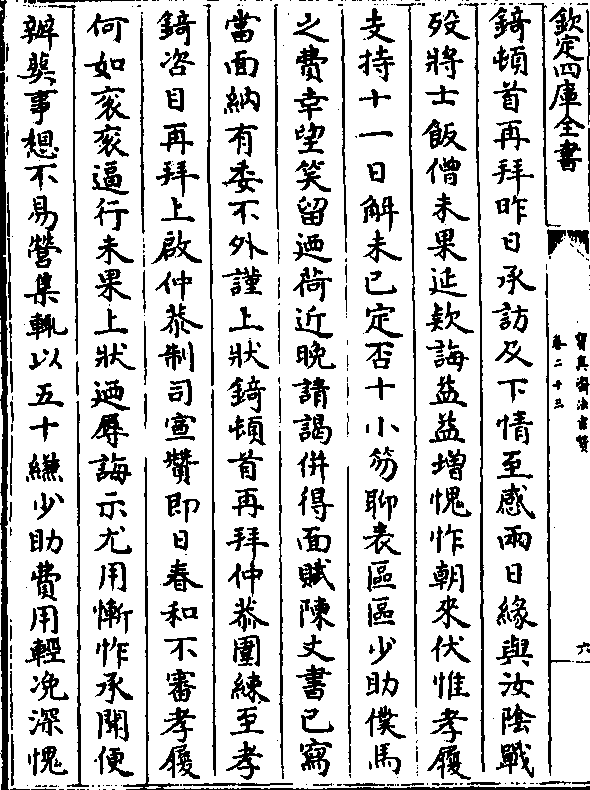 欽定四庫全書
寶真齋法書贊
卷二十三
六
錡頓首再拜昨日承訪及下情至感兩日緣與汝陰戰
歿將士飯僧未果延欵誨益益增愧怍朝來伏惟孝履
支持十一日斛未已定否十小笏聊表區區少助僕馬
之費幸望笑留廼荷近晚請謁併得面賦陳丈書已寫
當面納有委不外謹上狀錡頓首再拜仲恭團練至孝
錡咨目再拜上啟仲恭制司宣贊即日春和不審孝履
何如衮衮逼行未果上狀廼辱誨示尤用慚怍承開便
辦𦵏事想不易營集輒以五十縑少助費用輕凂深愧